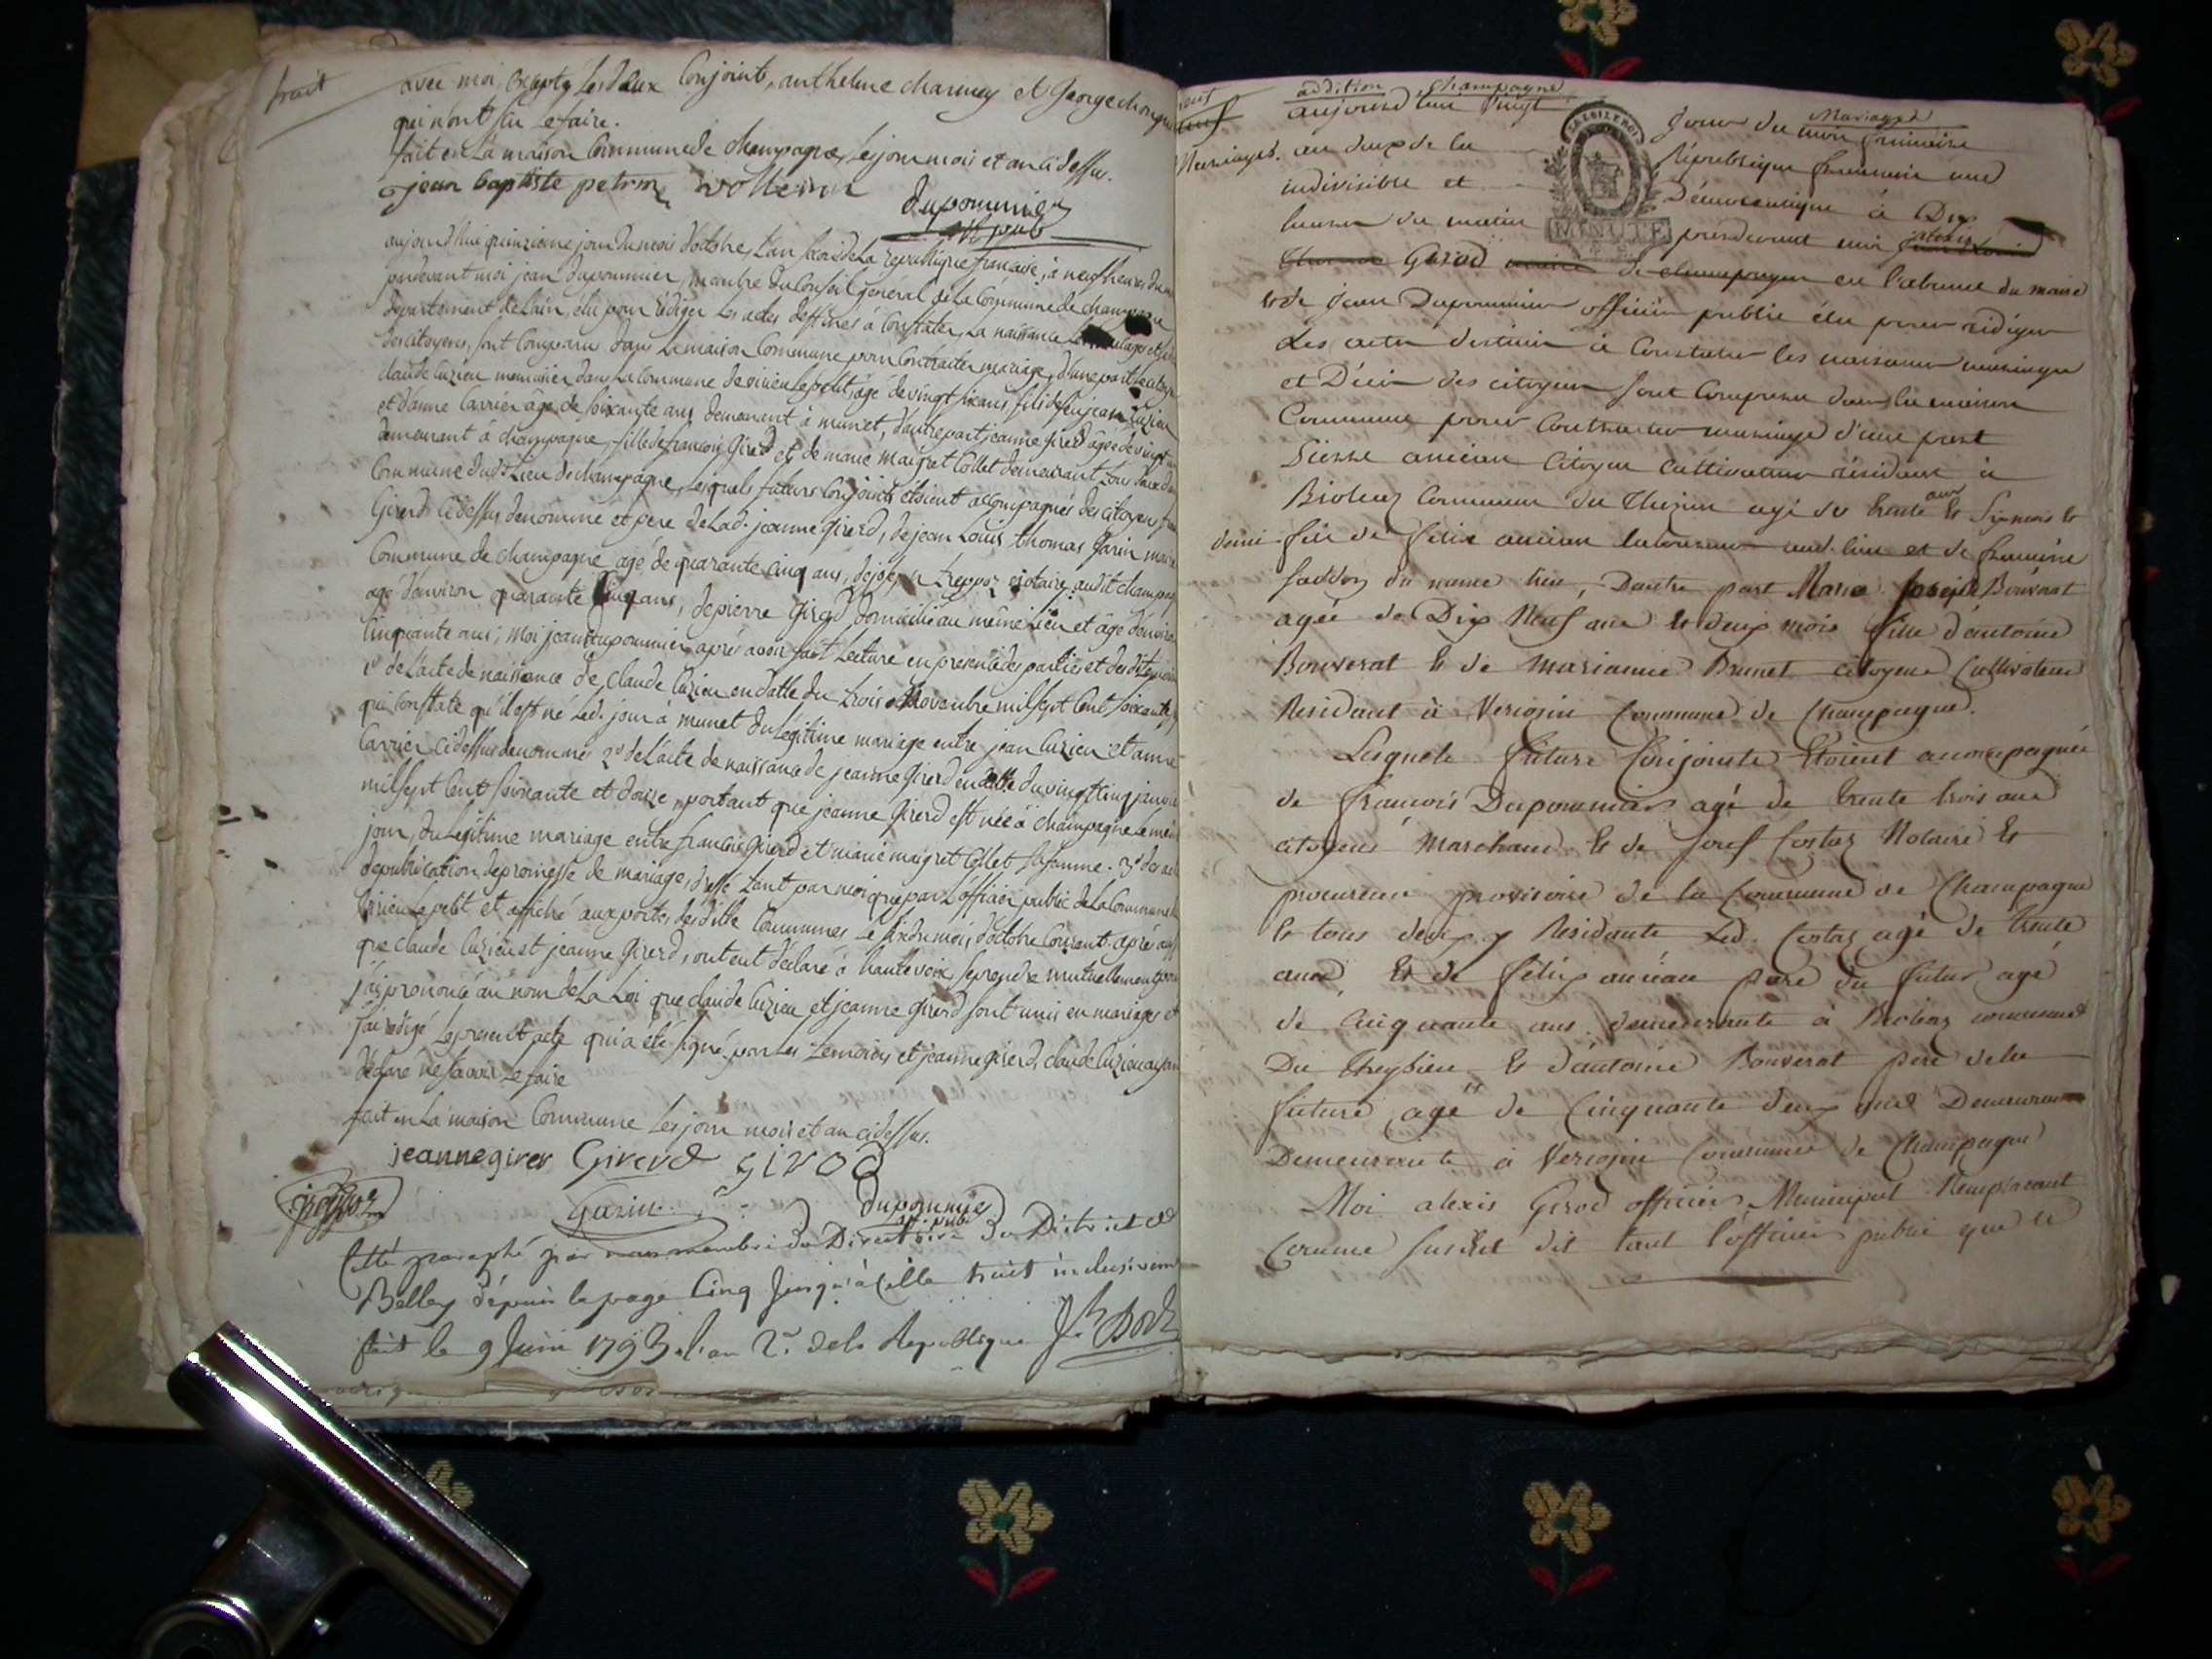 huit
avec moi, excepté les deux Conjoints, anthelme charvey et George
qui n'ont sçu le faire.
fait en La maison Commune de champagne, les jour mois et an ci dessus.
jean baptiste
dupommier
off. pub.
aujourd'hui quinzieme jour du mois d'octobre, L'an second de La republique française, à neuf heures du
pardevant moi jean dupommier, membre du Conseil general de La Commune de champagne
departement de L'ain, élu pour rédiger Les actes destinés à Constater La naissance Le mariage et
des citoyens, sont Comparus dans La maison Commune pour Contracter mariage, d'une part le citoyen
claude Cuzieu menuisier dans La Commune de virieu Le petit, âgé de vingt six ans fils de feu jean Cuzieu
et d'anne Carrier âgée de soixante ans demeurant à munet, d'autre part jeanne girerd âgée de vingt
demeurant à champagne, fille de francois Girerd et de marie maigret Collet demeurant tous deux dans
Commune dudt Lieu de champagne, Lesquels futurs Conjoints étoient accompagnés des citoyens
Girerd ci dessus denommé et pere de Lad. jeanne Girerd, de jean Louis thomas Garin maire
Commune de champagne âgé de quarante cinq ans, de joseph notaire audit champagne
âgé d'environ quarante cinq ans, de pierre Girod domicilié au même Lieu et âgé d'environ
Cinquante ans; moi jean dupommier après avoir fait Lecture en presence des parties et des dits temoins
1° de L'acte de naissance de claude Cuzieu en datte du trois novembre mil sept Cent soixante
qui constate qu'il est né Led. jour à munet du Légitime mariage entre jean Cuzieu et anne
Carrier ci dessus denommés 2° de L'acte de naissance de jeanne Girerd en datte du vingt cinq janvier
mil sept Cent soixante et douze, portant que jeanne Girerd est née à champagne Le même
jour, du Legitime mariage entre francois Girerd et marie maigret Collet sa femme. 3° des actes
de publication de promesse de mariage, dressé tant par moi que par L'officier public de La Commune de
Virieu Le petit et affiché aux portes desdittes Communes Le six du mois d'octobre Courant. après aussi
que claude Cuzieu et jeanne Girerd, ont eut déclaré à haute voix se prendre mutuellement pour
j'ai prononcé au nom de La Loi que claude Cuzieu et jeanne Girerd sont unis en mariage, et
j'ai rédigé Le present acte qui a été signé par Les temoins et jeanne girerd, claude Cuzieu ayant
déclaré ne savoir Le faire
fait en La maison Commune Les jour mois et an ci dessus.
jeanne girer Girerd girod
Garin dupommier
off. pub.
Cotté paraphé par membre du Directoire du District de
Belley dépuis la page Cinq Jusqu'à Celle huit inclusivement
fait le 9 Juin 1793 l'an 2e de la Republique
addition champagne
Mariages
aujourd'hui Vingt jour du mois frimaire
Mariages. an deux de la République française une
indivisible et Démocratique à Dix
heures du matin pardevant moi alexis
Girod de champagne en l'absence du maire
et de Jean Dupommier officier public élu pour rédiger
Les actes destinés à Constater les naissances mariages
et Décès des citoyens sont Comparus dans la maison
Commune pour Contracter mariage d'une part
Pierre ancian Citoyen Cultivateur résidant à
Commune du agé de trente ans et six mois et
demi fils de félix ancian laboureur aud. lieu et de
du meme lieu, Dautre part Marie Joseph Bouverat
agée de Dix Neuf ans et deux mois fille d'antoine
Bouverat et de Marianne Brunet citoyens Cultivateurs
Residant à Commune de Champagne.
Lesquels futurs Conjoints Etoient accompagnés
de francois Dupommier agé de trente trois ans
citoyen Marchand et de Josef Costaz Notaire et
procureur provisoire de la Commune de Champagne
et tous deux y Residants Led. Costaz agé de trente
ans, et de félix ancian pere du futur agé
de Cinquante ans demeurants à commune
Du et d'antoine Bouverat pere de la
future, agé de Cinquante deux ans Demeurant
Demeurants à Commune de Champagne
Moi alexis Girod officier Municipal Remplacant
Comme susdit dit tant l'officier public que le
LA LOI LE ROI
MINUTE